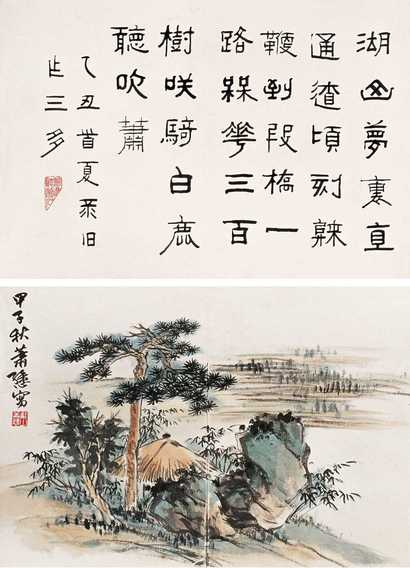 湖山夢裏直
通遼頃刻竦
鞭到段橋一
路槑花三百
樹咲騎白鹿
聽吹蕭
乙丑首夏录旧
作三多
甲子秋蕭愻寫